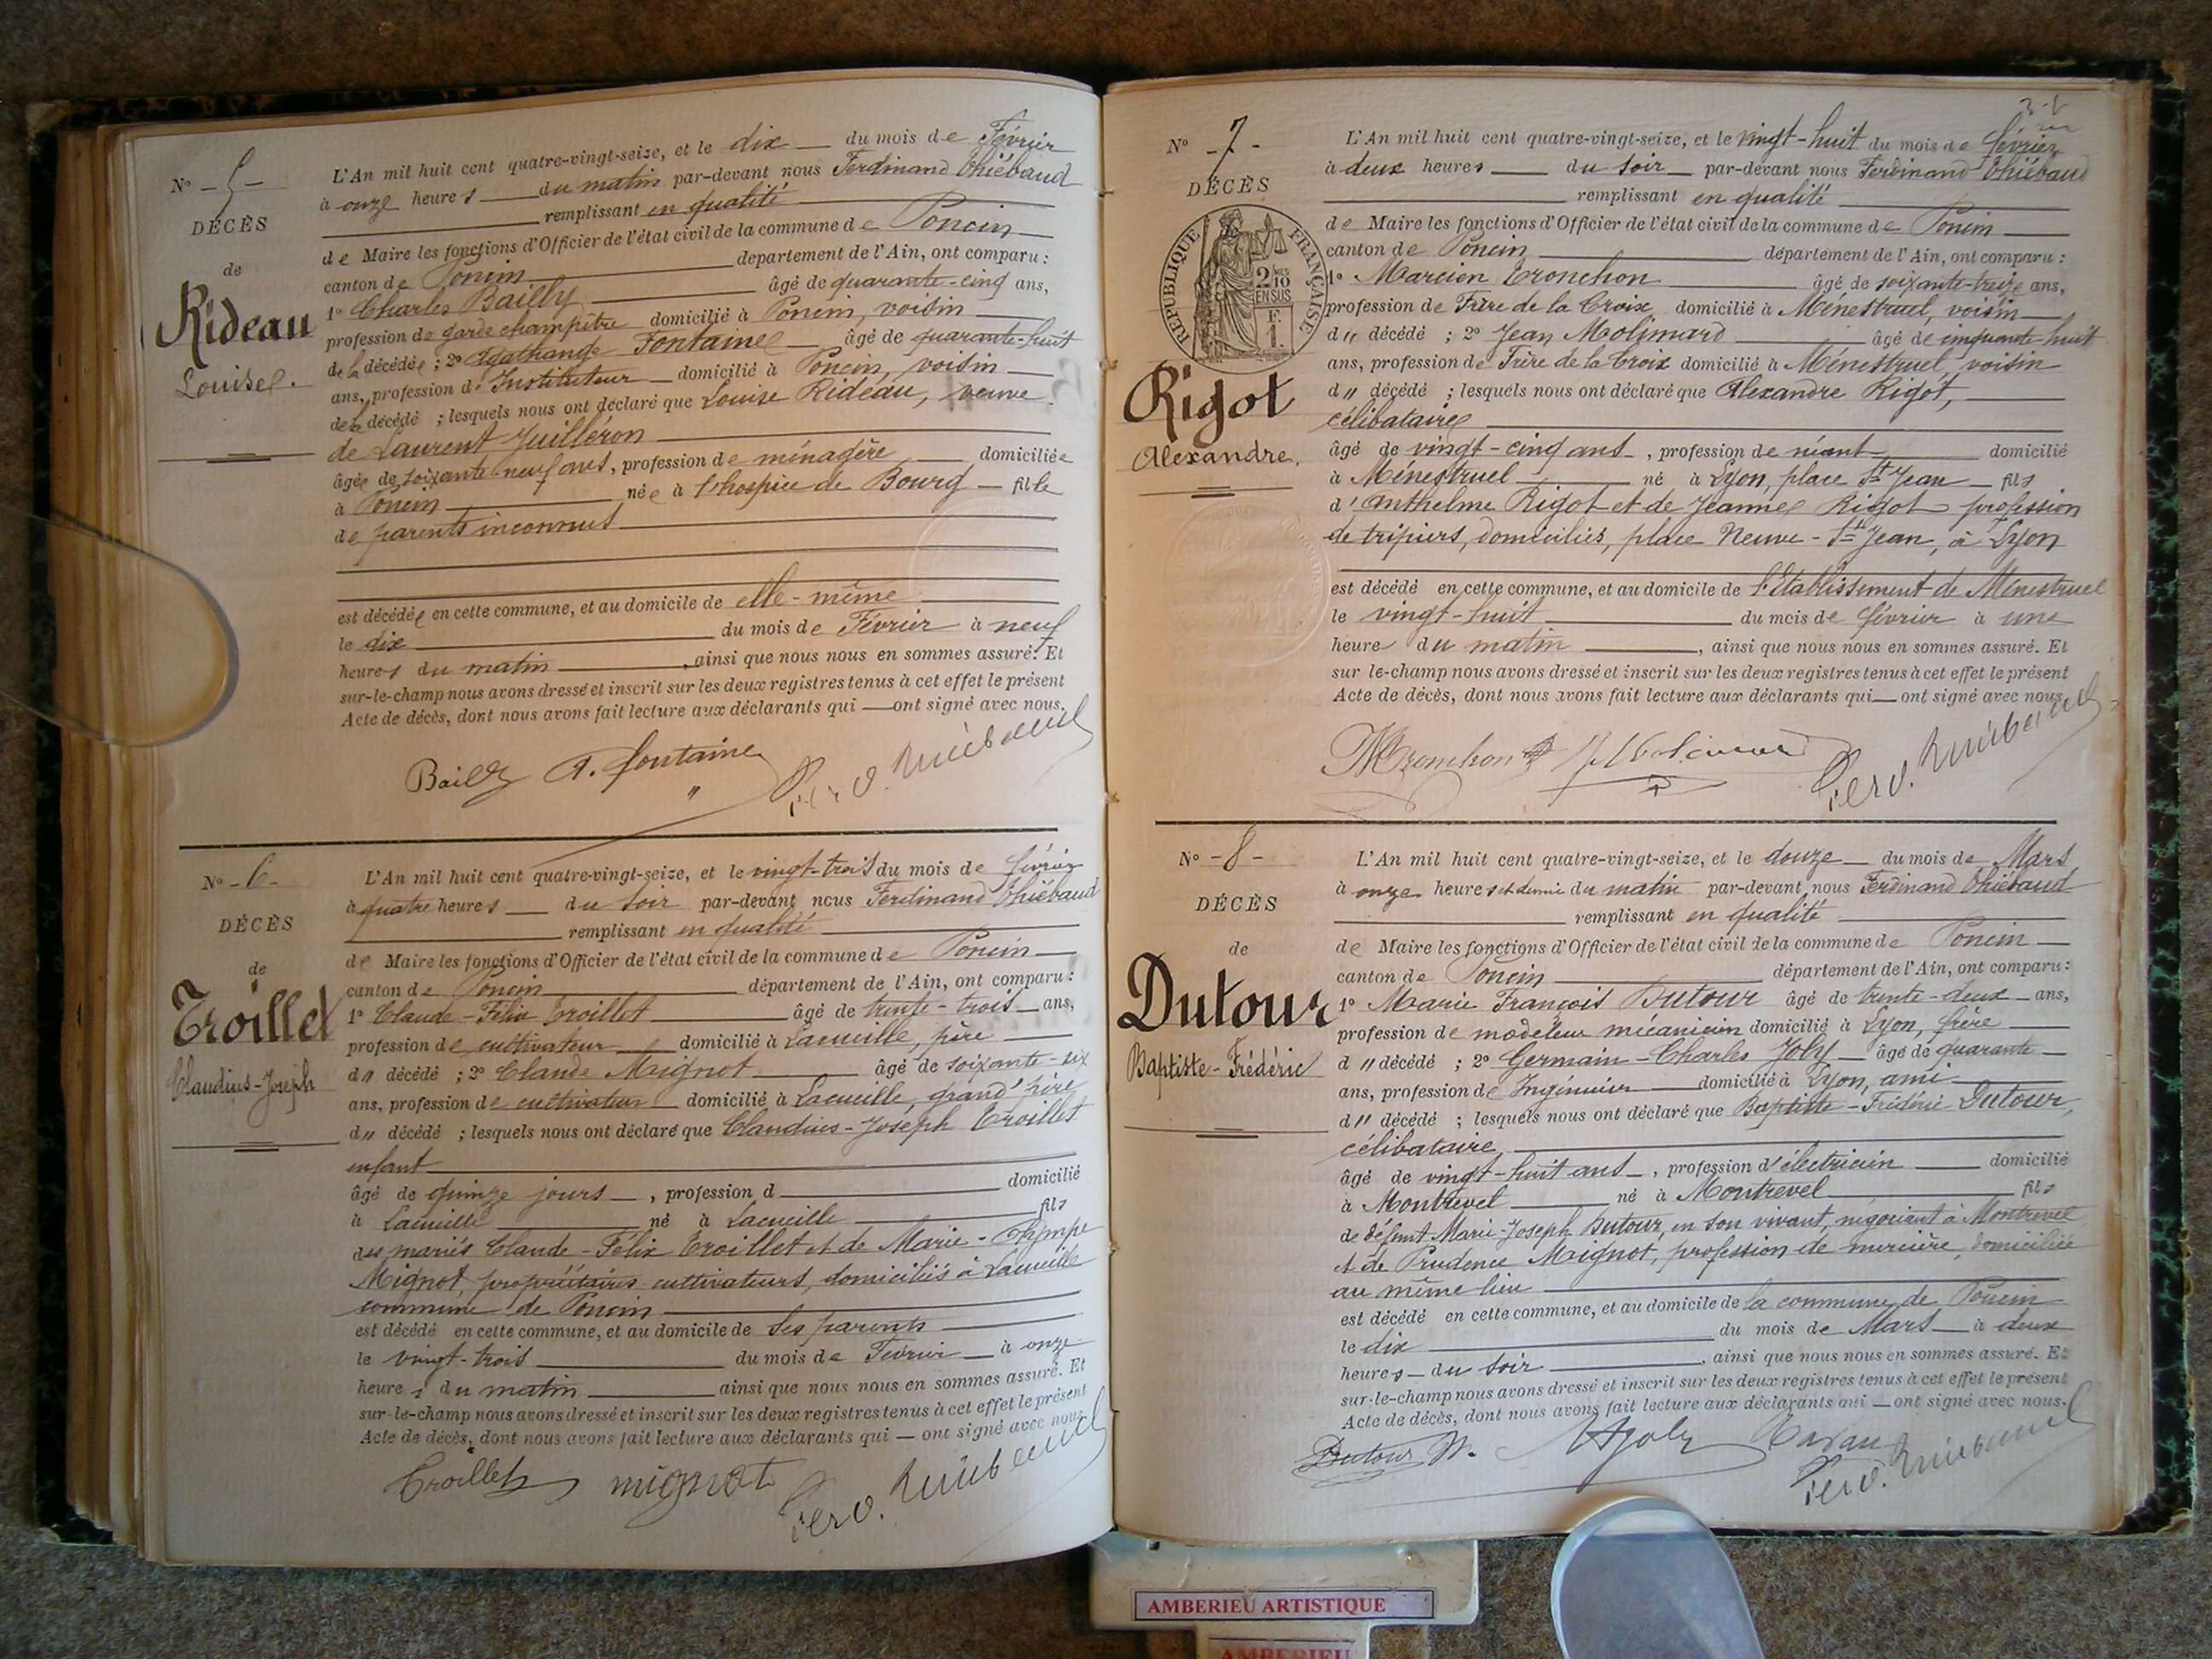 N° - 5 -
DÉCÈS
de
Rideau
Louise.
L'An mil huit cent quatre-vingt-seize, et le dix du mois de Février
à onze heures du matin par-devant nous Ferdinand Thiébaud
remplissant en qualité
de Maire les fonctions d'Officier de l'état civil de la commune de Poncin
canton de Poncin département de l'Ain, ont comparu :
1° Charles Bailly âgé de quarante-cinq ans,
profession de garde champêtre domicilié à Poncin, voisin
de la décédée ; 2° Agathange Fontaine âgé de quarante-huit
ans, profession d'Instituteur domicilié à Poncin, voisin
de la décédé ; lesquels nous ont déclaré que Louise Rideau, veuve
de Laurent Juilléron
âgée de soixante-neuf ans, profession de ménagère domiciliée
à Poncin née à l'hospice de Bourg fille
de parents inconnus
est décédée en cette commune, et au domicile de elle-même
le dix du mois de Février à neuf
heures du matin, ainsi que nous nous en sommes assuré. Et
sur-le-champ nous avons dressé et inscrit sur les deux registres tenus à cet effet le présent
Acte de décès, dont nous avons fait lecture aux déclarants qui ont signé avec nous.
Bailly A. fontaine Ferd. Thiébaud
N° - 6 -
DÉCÈS
de
Troillet
Claudius-Joseph
L'An mil huit cent quatre-vingt-seize, et le vingt-trois du mois de février
à quatre heures du soir par-devant nous Ferdinand Thiébaud
remplissant en qualité
de Maire les fonctions d'Officier de l'état civil de la commune de Poncin
canton de Poncin département de l'Ain, ont comparu :
1° Claude-Félix Troillet âgé de trente-trois ans,
profession de cultivateur domicilié à Lacueille, père
d" décédé ; 2° Claude Mignot âgé de soixante-six
ans, profession de cultivateur domicilié à Lacueille, grand'père
d" décédé ; lesquels nous ont déclaré que Claudius-Joseph Troillet
enfant
âgé de quinze jours, profession d domicilié
à Lacueille né à Lacueille fils
des mariés Claude-Félix Troillet et de Marie-Olympe
Mignot, propriétaires cultivateurs, domiciliés à Lacueille
commune de Poncin
est décédé en cette commune, et au domicile de ses parents
le vingt-trois du mois de Février à onze
heures du matin ainsi que nous nous en sommes assuré. Et
sur-le-champ nous avons dressé et inscrit sur les deux registres tenus à cet effet le présent
Acte de décès, dont nous avons fait lecture aux déclarants qui ont signé avec nous.
Troillet mignot Ferd. Thiébaud
N° - 7 -
DÉCÈS
RÉPUBLIQUE FRANÇAISE
2/10 EN SUS
F. 1.
Rigot
Alexandre.
L'An mil huit cent quatre-vingt-seize, et le vingt-huit du mois de février
à deux heures du soir par-devant nous Ferdinand Thiébaud
remplissant en qualité
de Maire les fonctions d'Officier de l'état civil de la commune de Poncin
canton de Poncin département de l'Ain, ont comparu :
1° Marcien Tronchon âgé de soixante-treize ans,
profession de Frère de la Croix domicilié à Ménestruel, voisin
d" décédé ; 2° Jean Molimard âgé de cinquante-huit
ans, profession de Frère de la Croix domicilié à Ménestruel, voisin
d" décédé ; lesquels nous ont déclaré que Alexandre Rigot,
célibataire
âgé de vingt-cinq ans, profession de néant domicilié
à Ménestruel né à Lyon, place St Jean fils
d'Anthelme Rigot et de Jeanne Rigot profession
de tripiers, domiciliés, place Neuve-St Jean, à Lyon
est décédé en cette commune, et au domicile de l'Etablissement de Ménestruel
le vingt-huit du mois de février à une
heure du matin, ainsi que nous nous en sommes assuré. Et
sur-le-champ nous avons dressé et inscrit sur les deux registres tenus à cet effet le présent
Acte de décès, dont nous avons fait lecture aux déclarants qui ont signé avec nous.
M Tronchon J Molimard Ferd. Thiébaud
N° - 8 -
DÉCÈS
de
Dutour
Baptiste-Frédéric
L'An mil huit cent quatre-vingt-seize, et le douze du mois de Mars
à onze heures et demie du matin par-devant nous Ferdinand Thiébaud
remplissant en qualité
de Maire les fonctions d'Officier de l'état civil de la commune de Poncin
canton de Poncin département de l'Ain, ont comparu :
1° Marie François Dutour âgé de trente-deux ans,
profession de modeleur mécanicien domicilié à Lyon, frère
d" décédé ; 2° Germain-Charles Joly âgé de quarante
ans, profession de Ingénieur domicilié à Lyon, ami
d" décédé ; lesquels nous ont déclaré que Baptiste-Frédéric Dutour,
célibataire,
âgé de vingt-huit ans, profession d'électricien domicilié
à Montrevel né à Montrevel fils
de défunt Marie-Joseph Dutour, en son vivant, négociant à Montrevel
et de Prudence Maignot, profession de mercière, domiciliée
au même lieu
est décédé en cette commune, et au domicile de la commune de Poncin
le dix du mois de Mars à deux
heures du soir, ainsi que nous nous en sommes assuré. Et
sur-le-champ nous avons dressé et inscrit sur les deux registres tenus à cet effet le présent
Acte de décès, dont nous avons fait lecture aux déclarants qui ont signé avec nous.
Dutour Joly Ferd. Thiébaud
AMBERIEU ARTISTIQUE
AMBERIEU